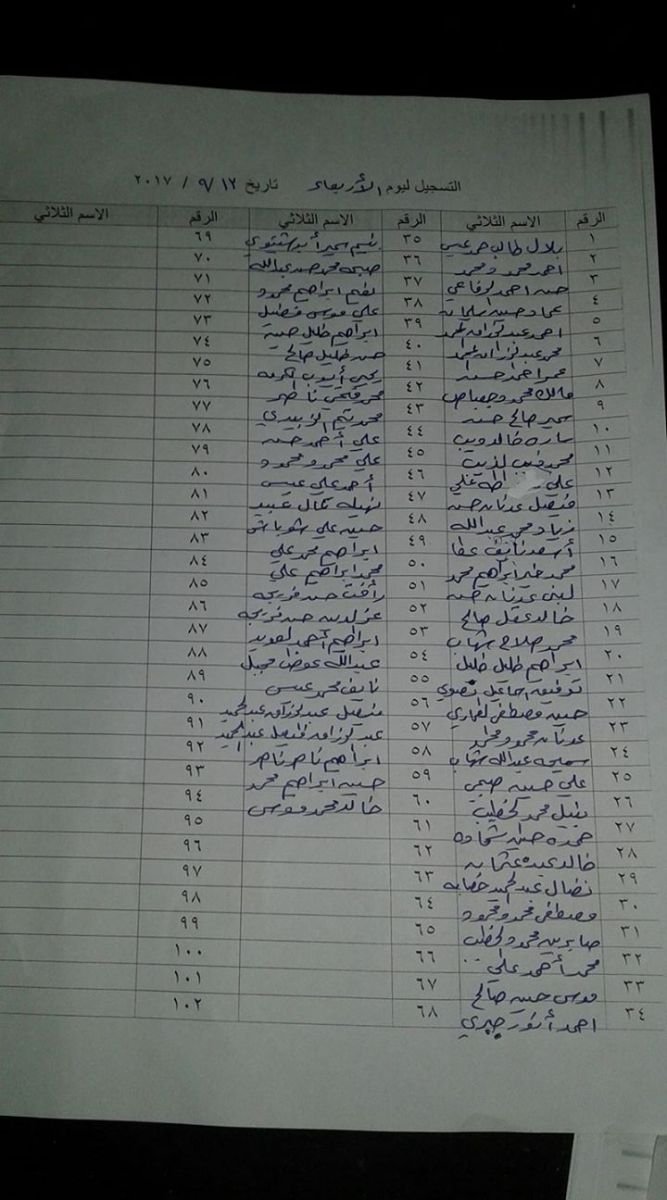 التسجيل ليوم الأربعاء تاريخ ٩/١٣ / ٢٠١٧
الرقم الاسم الثلاثي الرقم الاسم الثلاثي الرقم الاسم الثلاثي
١ بلال طالب حمد عيسى ٣٥ بنسيم سمير أبو شتيوي ٦٩
٢ احمد محمود محمد ٣٦ صبحه محمد حسن عبدالله ٧٠
٣ حسن احمد الرفاعي ٣٧ ابراهيم محمود ٧١
٤ عماد حسين سليمان ٣٨ علي موسى فضيل ٧٢
٥ احمد عبدالرزاق محمد ٣٩ ابراهيم خليل حسين ٧٣
٦ محمد عبدالرزاق محمد ٤٠ حسن خليل صالح ٧٤
٧ عمر احمد حسن ٤١ يحيى أيوب ٧٥
٨ مالك محمود ٤٢ محمد فتحي ناصر ٧٦
٩ سمير صالح حسن ٤٣ محمد تيم الزبيدي ٧٧
١٠ ساره خالد ذيب ٤٤ علي أحمد حسن ٧٨
١١ محمد ذيب الذيب ٤٥ علي محمود محمود ٧٩
١٢ علي ٤٦ أحمد علي عيسى ٨٠
١٣ فيصل عدنان حسن ٤٧ نهيله كمال عبيد ٨١
١٤ زياد محي عبدالله ٤٨ حسين علي شوباش ٨٢
١٥ أسعد نايف عطا ٤٩ ابراهيم محمد علي ٨٣
١٦ محمد خير ابراهيم محمد ٥٠ محمد ابراهيم علي ٨٤
١٧ لبنى عدنان حسن ٥١ رأفت حسن فريجه ٨٥
١٨ خالد عقل صالح ٥٢ عزالدين حسن فريجه ٨٦
١٩ محمد صلاح شهاب ٥٣ ابراهيم أحمد ٨٧
٢٠ ابراهيم خليل خليل ٥٤ عبدالله عوض محيل ٨٨
٢١ توفيق اسماعيل ٥٥ نايف محمد عيسى ٨٩
٢٢ حسين مصطفى الهواري ٥٦ فيصل عبدالرزاق عبدالحميد ٩٠
٢٣ عدنان محمود محمد ٥٧ عبدالرزاق فيصل عبدالحميد ٩١
٢٤ سميحه عبدالله شهاب ٥٨ ابراهيم ناصر ناصر ٩٢
٢٥ علي حسين صبحي ٥٩ حسين ابراهيم محمد ٩٣
٢٦ نبيل محمد الخطيب ٦٠ خالد محمد موسى ٩٤
٢٧ حمزه حسان شحاده ٦١ ٩٥
٢٨ خالد عبده عثمان ٦٢ ٩٦
٢٩ نضال عبدالحميد ٦٣ ٩٧
٣٠ مصطفى محمد محمود ٦٤ ٩٨
٣١ صابرين محمود الخطيب ٦٥ ٩٩
٣٢ محمد أحمد علي ٦٦ ١٠٠
٣٣ موسى حسين صالح ٦٧ ١٠١
٣٤ احمد أنور جبري ٦٨ ١٠٢